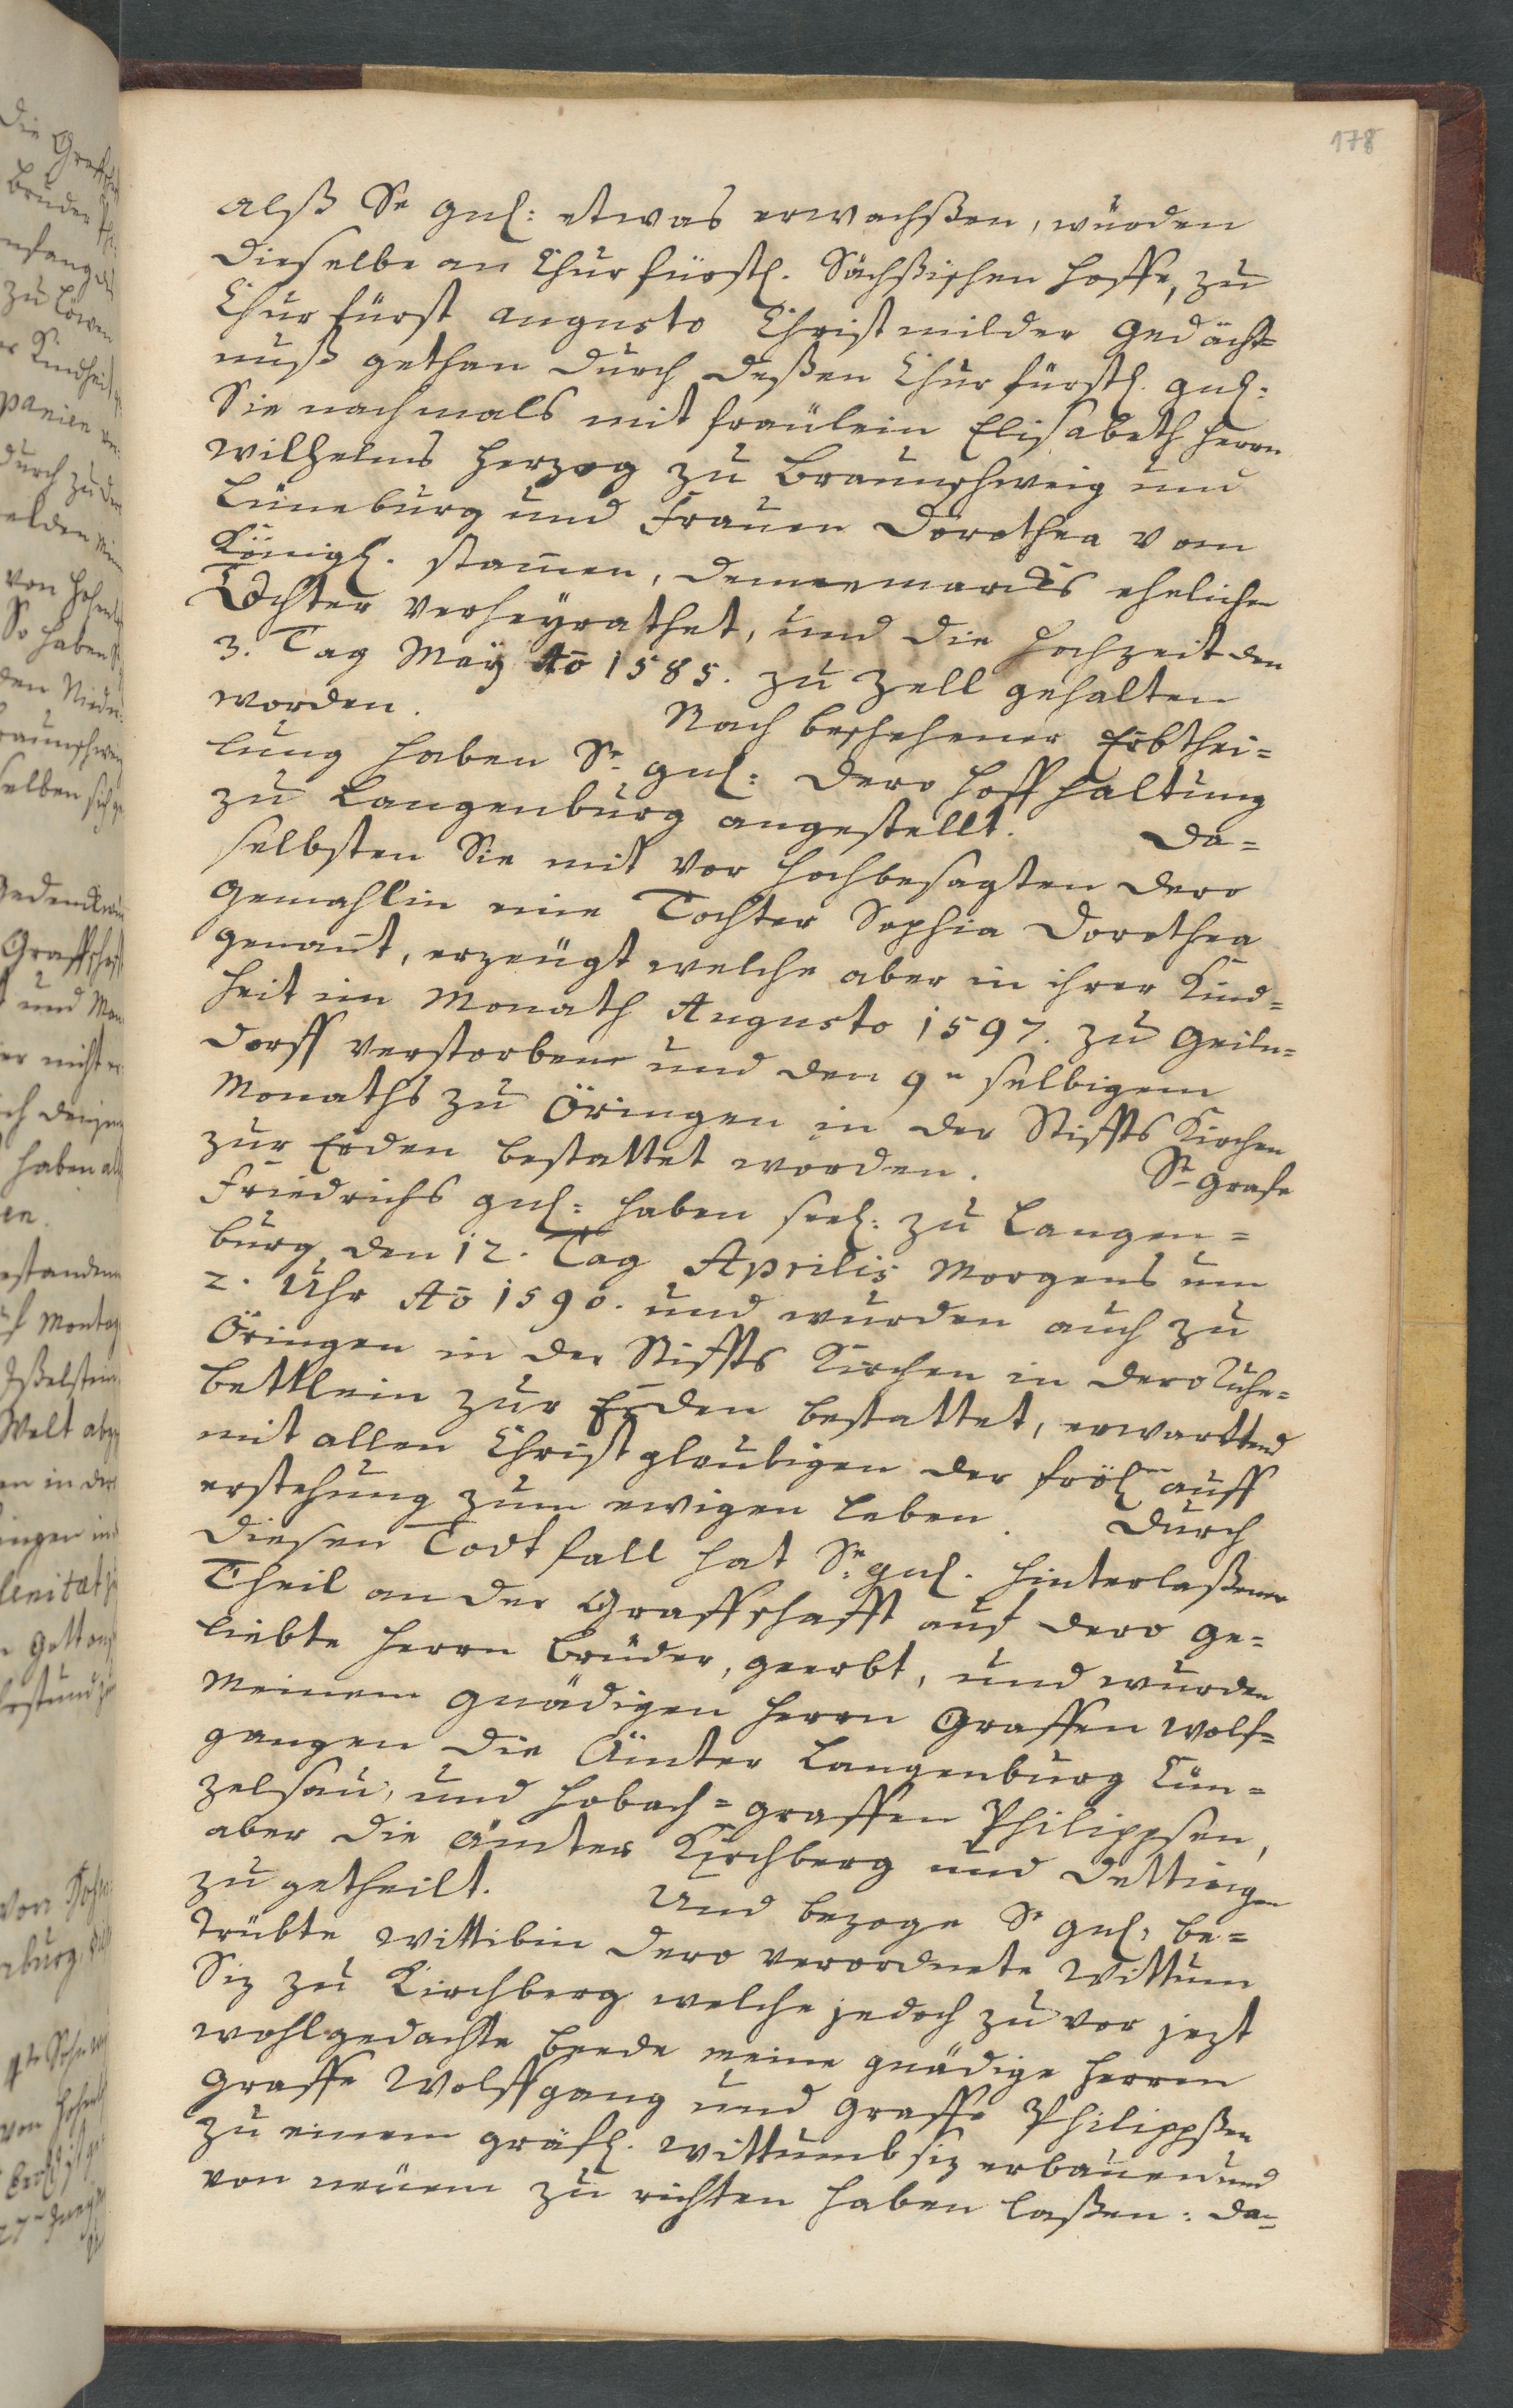 178
alß Sr gnl: etwas erwachßen, wurden
dieselbe an Churfürstl. Sächßischen hoffe, zu
Churfürst Augusto Christmilder Gedächt=
nuß gethan durch deßen Churfürstl. gnl:
Sie nachmals mit fräulein Elisabeth Herrn
Wilhelms Herzog zu Braunschweig und
Lüneburg und Frauen Dorothea vom
Königl. stam̄en, Dennemarcks ehelichen
Tochter verheyrathet, und die Hochzeit den
3. Tag Maÿ Ao 1585. zu Zell gehalten
worden. Nach beschehener Erbthei=
lung haben Sr gnl: dero Hoffhaltung
zu Langenburg angestellt. Da=
selbsten Sie mit vor hochbesagten dero
Gemahlin eine Tochter Sophia Dorothea
genan̄t, erzeugt welche aber in ihrer Kind=
heit im Monath Augusto 1597. zu Geiln=
dorff verstorben und den 9n selbigem
Monaths zu Öringen in der Stiffts Kirchen
zur Erden bestattet worden. Sr Grafe
Friedrichs gnl: haben seel: zu Langen=
burg den 12. Tag Aprilis Morgens um
2. Uhr Ao 1590. und wurden auch zu
Öringen in der Stiffts Kirchen in dero Ruhe=
bettlein zur Erden bestattet, erwarttend
mit allen Christglaubigen der fröln auff
erstehung zum ewigen Leben. Durch
diesen Todtfall hat Sr gnl. hinterlaßener
Theil an der Graffschafft auf dero ge=
liebte Herrn Brüder, geerbt, und wurden
meinem gnädigen Herrn Graffen Wolf=
gangen die Ämter Langenburg Cün=
zelsau, und Hobach = Graffen Philippsen,
aber die Ämter Kirchberg und Dettingen
zugetheilt. Und bezoge Sr gnl: be=
trübte Wittibin dero verordnete Wittum
Siz zu Kirchberg welche jedoch zu vor jezt
wohlgedachte beede meine gnädige Herren
Graffe Wolffgang und Graffe Philippßen
zu einem gräfl. Wittumbsiz erbauen und
von neuem zu richten haben laßen: da=